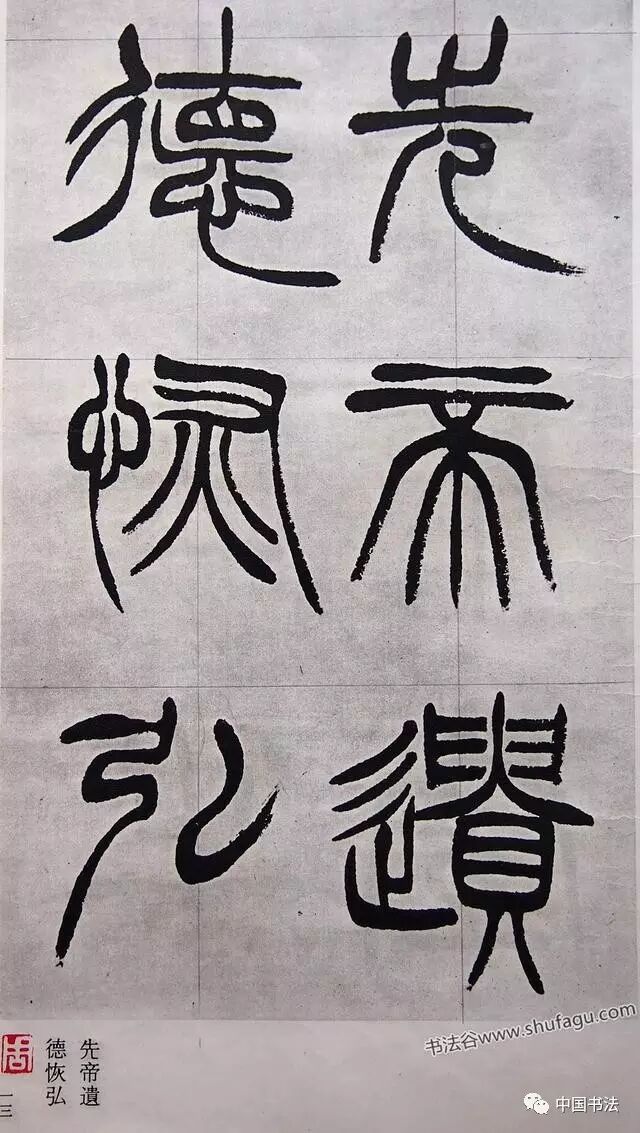 先帝遺
德恢弘
先帝遺
德恢弘
一三
书法谷www.shufagu.com
中国书法